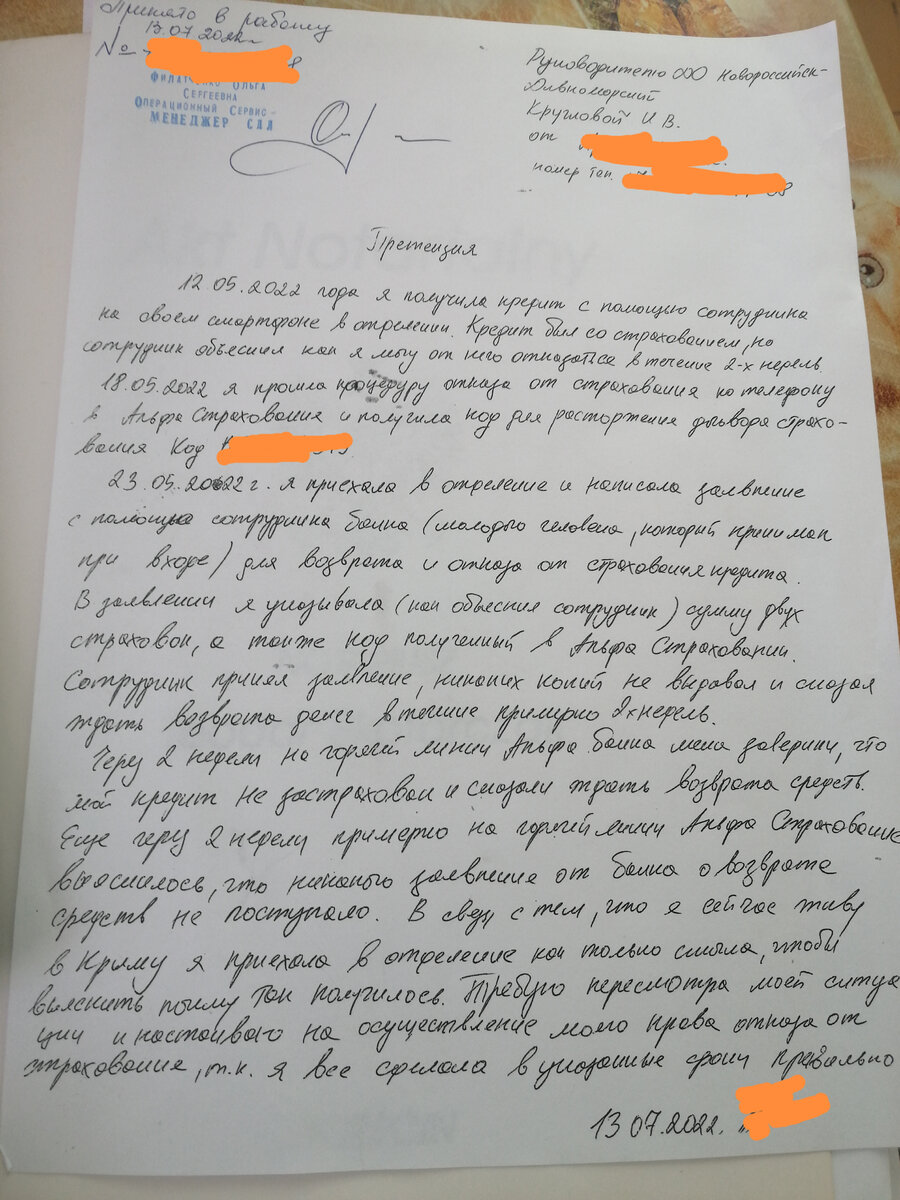 Принято в работу
13.07.2022г
№ 8
Филатченко Ольга
Сергеевна
Операционный Сервис-
МЕНЕДЖЕР САЛ
Руководителю ООО Новороссийск-
Дивноморский
Кругловой И В.
от
номер тел. 08
Претенция
12 05.2022 года я получила кредит с помощью сотрудника
на своем смартфоне в отделении. Кредит был со страхованием, но
сотрудник объеснил как я могу от него отказаться в течение 2-х недель.
18.05.2022 я прошла процедуру отказа от страхования по телефону
в Альфа Страхование и получила код для расторжения договора страхо-
вания Код
23.05.2022 г. я приехала в отделение и написала заявление
с помощью сотрудника банка (молодого человека, который принимал
при входе) для возврата и отказа от страхования кредита.
В заявлении я указывала (как объеснил сотрудник) сумму двух
страховок, а также код полученный в Альфа Страховании.
Сотрудник принял заявление, никаких копий не выдавал и сказал
ждать возврата денег в течение примерно 2х недель.
Через 2 недели на горячей линии Альфа банка меня заверили, что
мой кредит не застрахован и сказали ждать возврата средств.
Еще через 2 недели примерно на горячей линии Альфа Страхование
выяснилось, что никакого заявление от банка о возврате
средств не поступало. В связи с тем, что я сейчас живу
в Крыму я приехала в отделение как только смогла, чтобы
выяснить почему так получилось. Требую пересмотра моей ситуа
ции и настаиваю на осуществление моего права отказа от
страхование, т.к. я все сделала в указанные сроки правильно
13.07.2022.